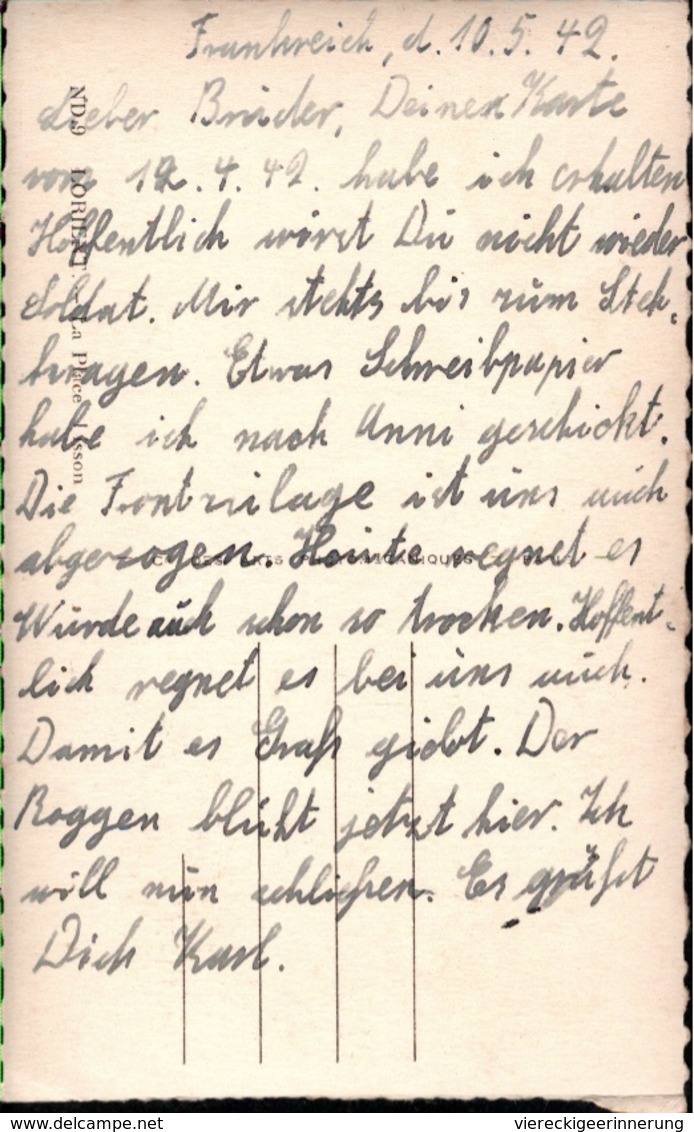 Frankreich, d. 10.5.42.
Lieber Brüder, Deinen Karte
vom 12.4.42. habe ich erhalten
Hoffentlich wirst Du nicht wieder
Soldat. Mir stehts bis zum Steh-
kragen. Etwas Schreibpapier
habe ich nach Anni geschickt.
Die Frontzulage ist uns auch
abgezogen. Heute regnet es
Wurde auch schon so trocken. Hoffent-
lich regnet es bei uns auch.
Damit es Graß giebt. Der
Roggen blüht jetzt hier. Ich
will nun schließen. Es grüßt
Dich Karl.
ND. 9 LORIENT. - La Place
www.delcampe.net
viereckigeerinnerung